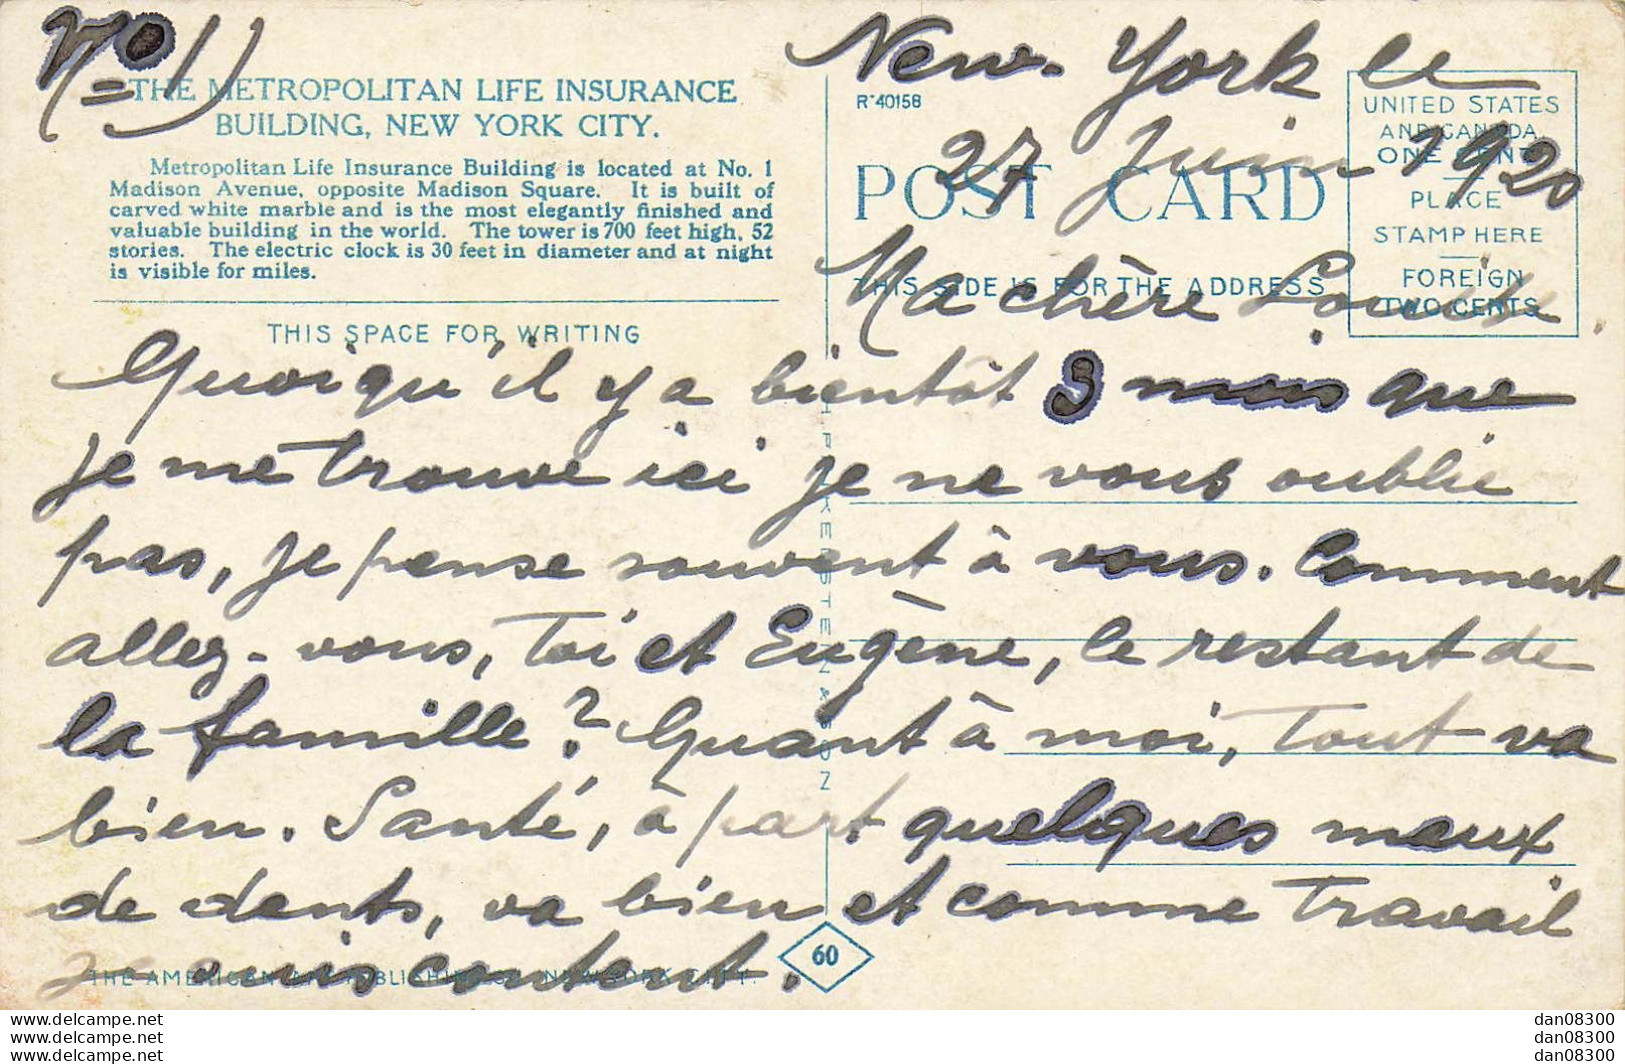 N° 1)
THE METROPOLITAN LIFE INSURANCE
BUILDING, NEW YORK CITY.
Metropolitan Life Insurance Building is located at No. 1
Madison Avenue, opposite Madison Square. It is built of
carved white marble and is the most elegantly finished and
valuable building in the world. The tower is 700 feet high, 52
stories. The electric clock is 30 feet in diameter and at night
is visible for miles.
THIS SPACE FOR WRITING
R-40158
POST CARD
THIS SIDE IS FOR THE ADDRESS
UNITED STATES
AND CANADA
ONE CENT
PLACE
STAMP HERE
FOREIGN
TWO CENTS
New-York le
27 Juin 1920
Ma chère Louise
Quoiqu'il y a bientôt 3 mois que
je me trouve ici je ne vous oublie
pas, je pense souvent à vous. Comment
allez-vous, toi et Eugène, le restant de
la famille? Quant à moi, tout va
bien. Santé, à part quelques maux
de dents, va bien et comme travail
je suis content.
THE AMERICAN ART PUBLISHING CO. NEW YORK CITY.
60
www.delcampe.net
www.delcampe.net
www.delcampe.net
dan08300
dan08300
dan08300